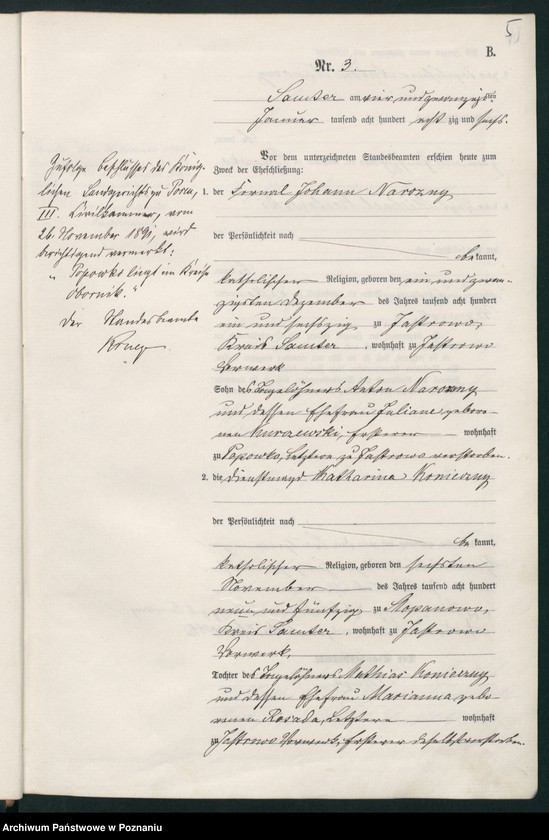 5
B.
Nr. 3.
Samter am vier und zwanzigsten
Januar tausend acht hundert acht zig und sechs.
Vor dem unterzeichneten Standesbeamten erschien heute zum
Zweck der Eheschließung:
1. der Fornal Johann Narozny
der Persönlichkeit nach
bekannt,
katholischer Religion, geboren den ein und zwan-
zigsten Dezember des Jahres tausend acht hundert
ein und sechszig zu Jastrowo,
Kreis Samter, wohnhaft zu Jastrowo
Vorwerk
Sohn des Tagelöhners Anton Narozny
und dessen Ehefrau Juliane, gebore-
nen Kurzewski, Ersterer wohnhaft
zu Popowko, Letztere zu Jastrowo verstorben.
2. die Dienstmagd Katharina Konieczny
der Persönlichkeit nach
be kannt,
katholischer Religion, geboren den sechsten
November des Jahres tausend acht hundert
neun und fünfzig zu Stopanowo,
Kreis Samter, wohnhaft zu Jastrowo
Vorwerk,
Tochter des Tagelöhners Mathias Konieczny
und dessen Ehefrau Marianna, gebo-
renen Rosada, Letztere wohnhaft
zu Jastrowo Vorwerk, Ersterer daselbst verstorben.
Zufolge Beschlusses des König-
lichen Landgerichts zu Posen,
III. Civilkammer, vom
26. November 1891, wird
berichtigend vermerkt:
"Popowko liegt im Kreise
Obornik."
Der Standesbeamte
Archiwum Państwowe w Poznaniu